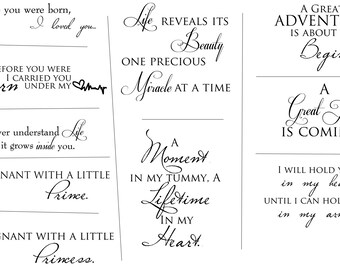 you were born,
I loved you.
BEFORE YOU WERE
I CARRIED YOU
UNDER MY
understand Life
it grows inside you.
WITH A LITTLE
Prince.
WITH A LITTLE
Princess.
Life REVEALS ITS
Beauty
ONE PRECIOUS
Miracle AT A TIME
A
Moment
IN MY TUMMY, A
Lifetime
IN MY
Heart.
A GREAT
IS ABOUT
A
Great
IS COMING
I WILL HOLD
in my
UNTIL I CAN HOLD
in my